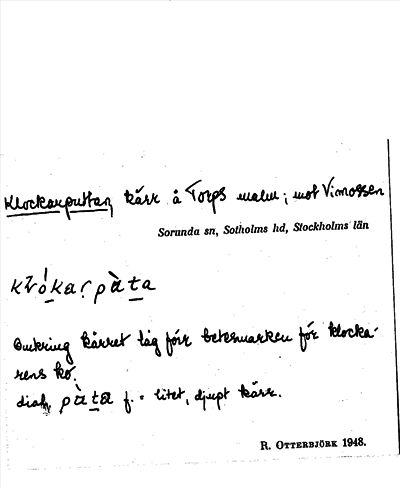 Klockarputtan, kärr å Torps malm; mot Vimossen
Sorunda sn, Sotholms hd, Stockholms län
Omkring kärret låg förr betesmarken för klocka-
rens ko.
dial. f. = litet, djupt kärr.
R. OTTERBJÖRK 1948.